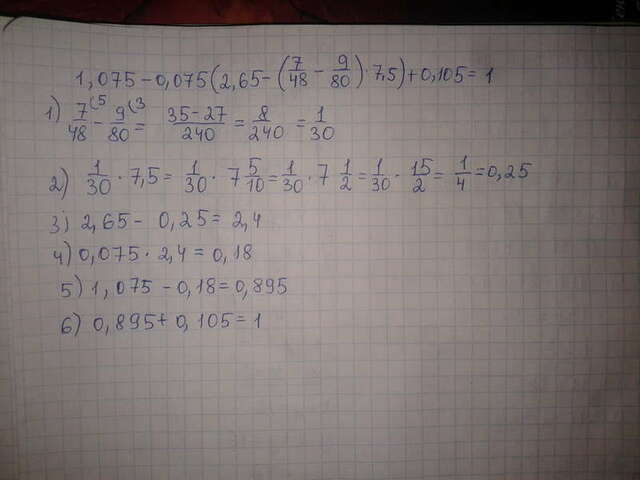 1,075 - 0,075(2,65 - (7/48 - 9/80) · 7,5) + 0,105 = 1
1) 7(5/48 - 9(3/80 = 35-27/240 = 8/240 = 1/30
2) 1/30 · 7,5 = 1/30 · 7 5/10 = 1/30 · 7 1/2 = 1/30 · 15/2 = 1/4 = 0,25
3) 2,65 - 0,25 = 2,4
4) 0,075 · 2,4 = 0,18
5) 1,075 - 0,18 = 0,895
6) 0,895 + 0,105 = 1